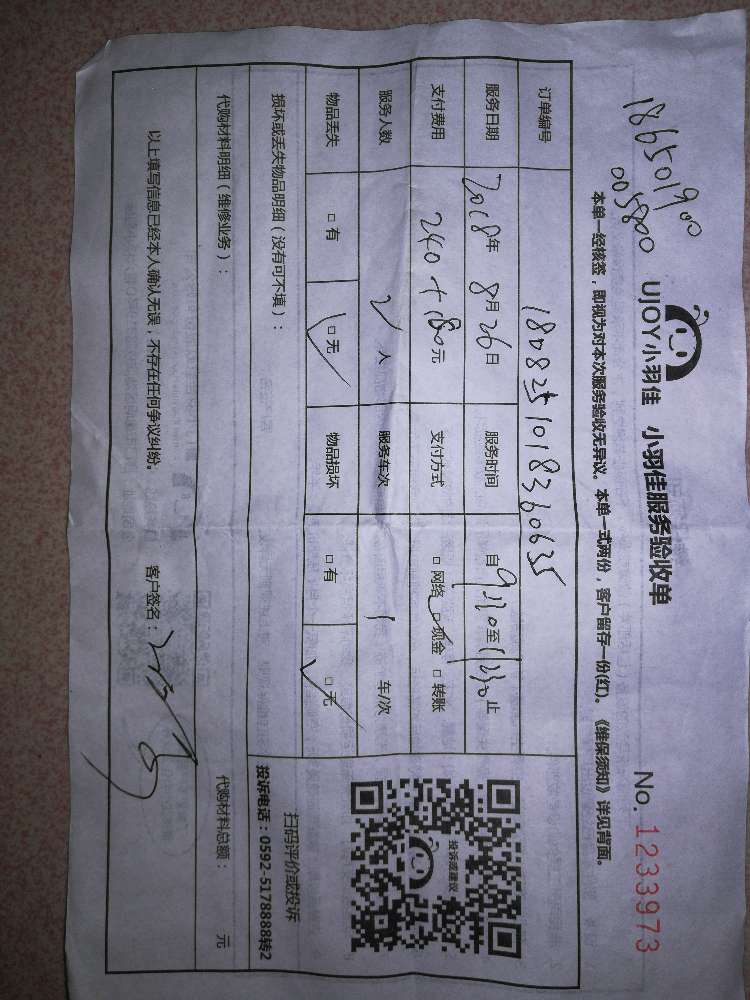 18650190000
005800
UJOY小羽佳 小羽佳服务验收单
No. 1233973
本单一经核签，即视为对本次服务验收无异议。本单一式两份，客户留存一份(红)。《维保须知》详见背面。
订单编号 1808251018360635
服务日期 2018年 8月26日 服务时间 自9:30至11:30止
支付费用 240+180元 支付方式 □ 网络 □ 现金 □ 转账
服务人数 2 人 服务车次 1 车/次
物品丢失 □ 有 □ 无 物品损坏 □ 有 □ 无
损坏或丢失物品明细（没有可不填）：
投诉或建议
扫码评价或投诉
投诉电话：0592-5178888转2
代购材料明细（维修业务）： 代购材料总额： 元
以上填写信息已经本人确认无误，不存在任何争议纠纷。 客户签名：